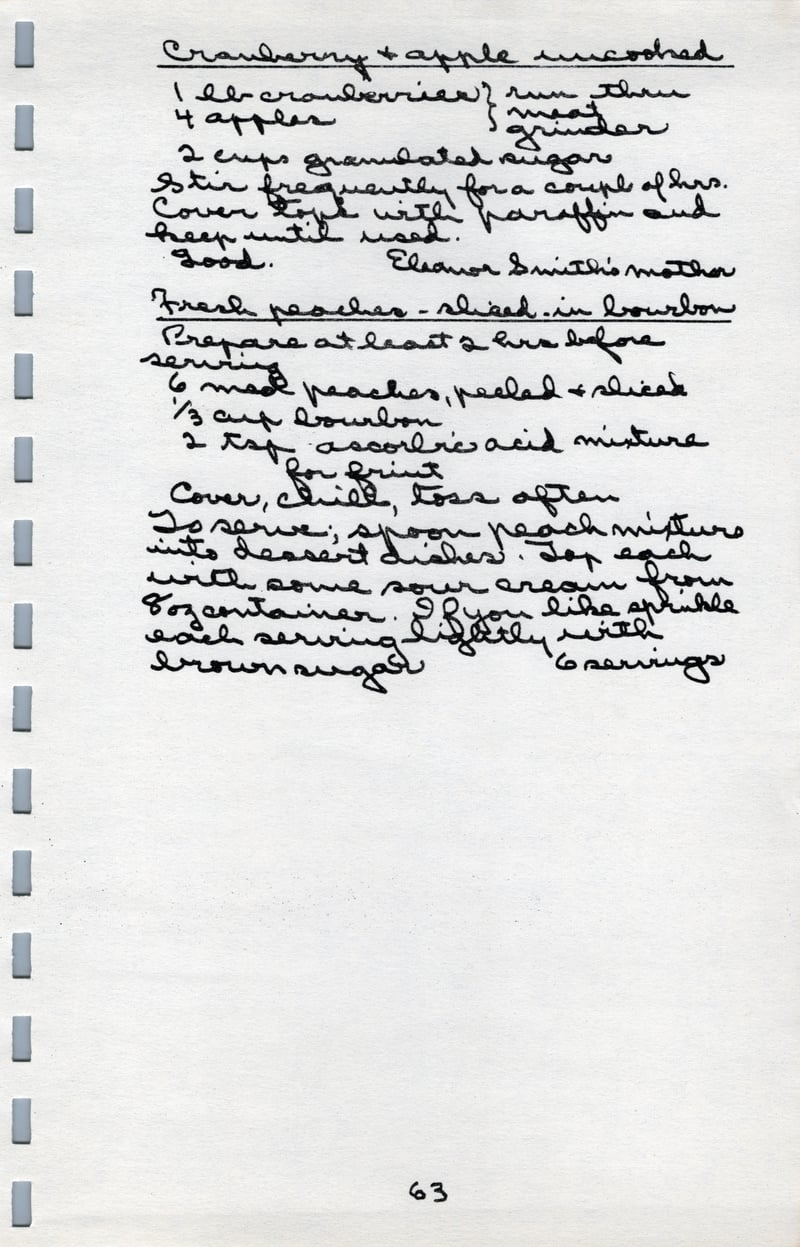 Cranberry + apple uncooked
1 lb cranberries } run thru
4 apples } meat
grinder
2 cups granulated sugar
Stir frequently for a coupl of hrs.
Cover tops with paraffin and
keep until used.
Good. Eleanor Smith's mother
Fresh peaches - sliced - in bourbon
Prepare at least 2 hrs before
serving
6 med peaches, peeled + sliced
1/3 cup bourbon
2 tsp ascorbic acid mixture
for fruit
Cover, chill, toss often
To serve; spoon peach mixture
into dessert dishes. Top each
with some sour cream from
8 oz container. If you like sprinkle
each serving lightly with
brown sugar 6 servings
63